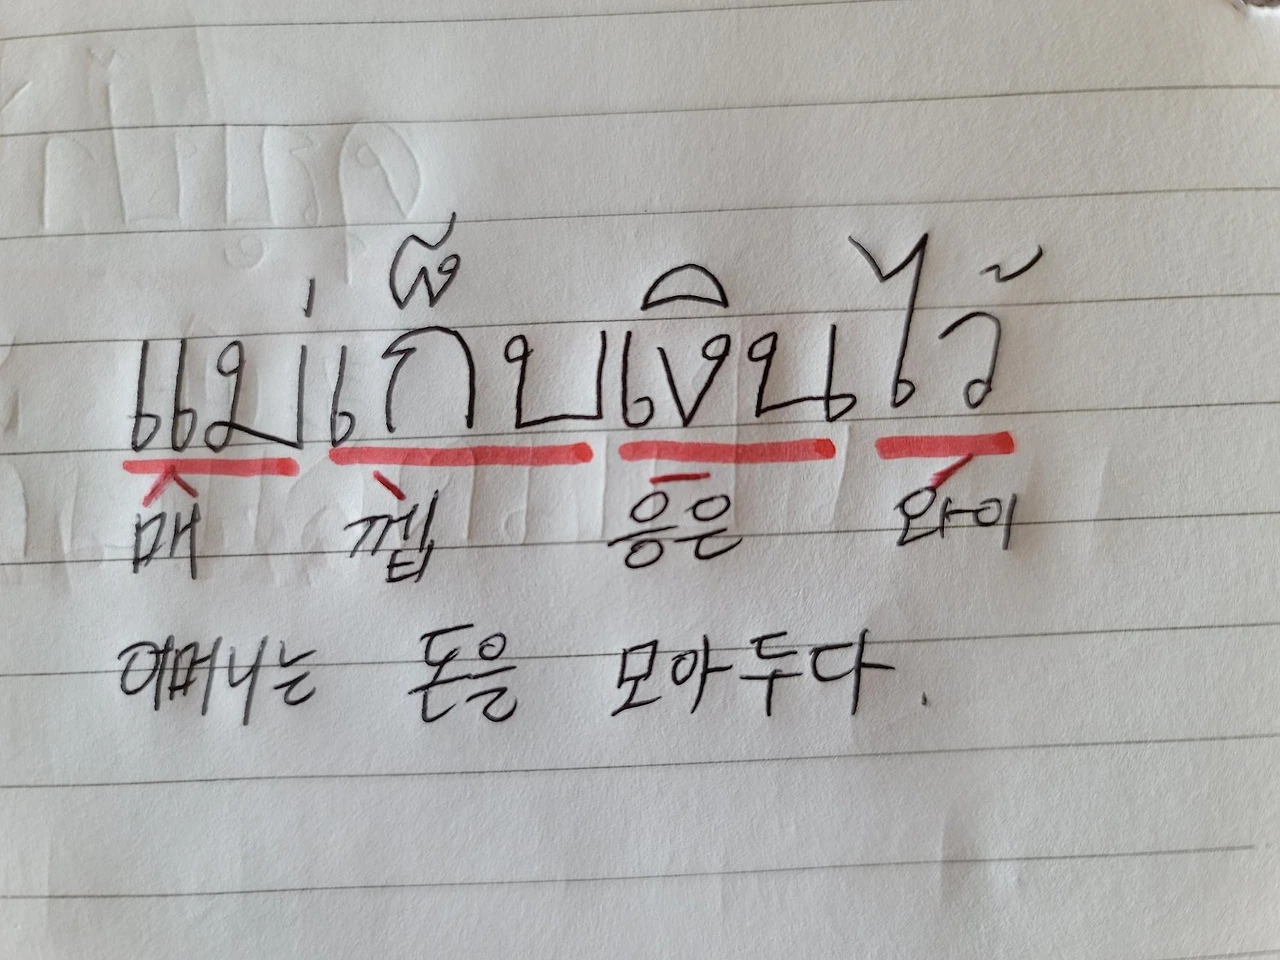 แม่เก็บเงินไว้
매 껩 응은 와이
어머니는 돈을 모아두다.